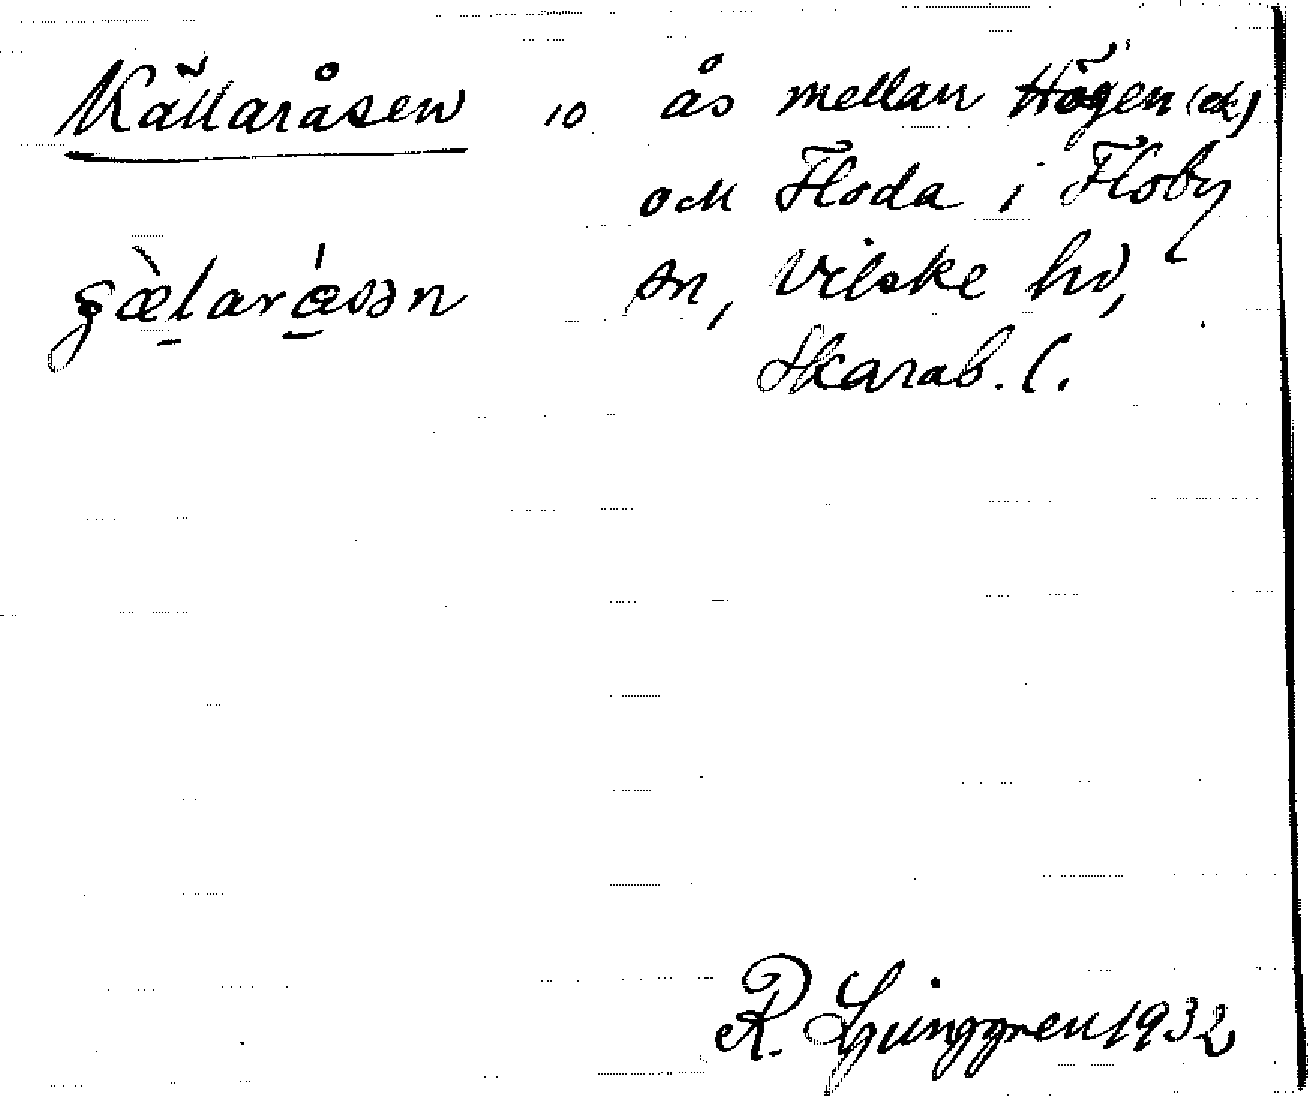 Källaråsen 10 ås mellan Högen (dk)
och Floda i Floby
sn, Vilske hd,
Skarab. l.
R. Ljunggren 1932